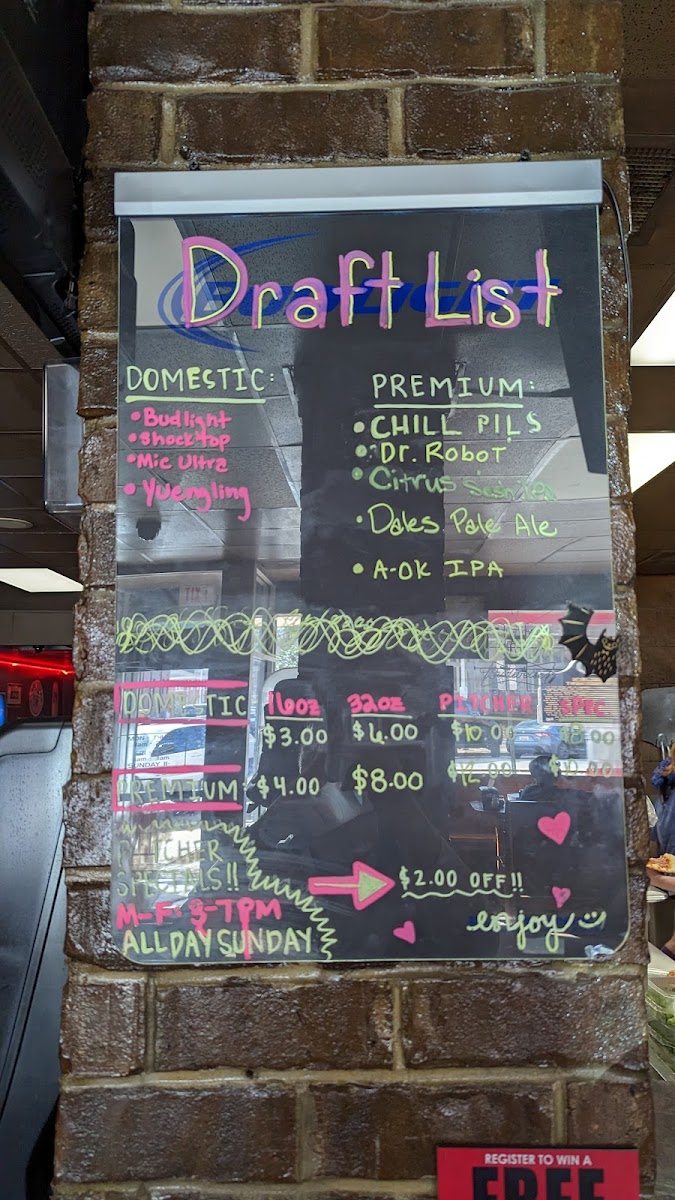 BUD LIGHT
Draft List
DOMESTIC:
• Budlight
• Shocktop
• Mic Ultra
• Yuengling
PREMIUM:
• CHILL PILS
• Dr. Robot
• Citrus
• Dales Pale Ale
• A-OK IPA
16oz 32oz PITCHER SPEC
DOMESTIC $3.00 $6.00 $10.00 $8.00
PREMIUM $4.00 $8.00 $12.00 $10.00
PITCHER
SPECIALS!!
M-F: 3-7PM
ALL DAY SUNDAY
$2.00 OFF!!
enjoy
REGISTER TO WIN A
FREE